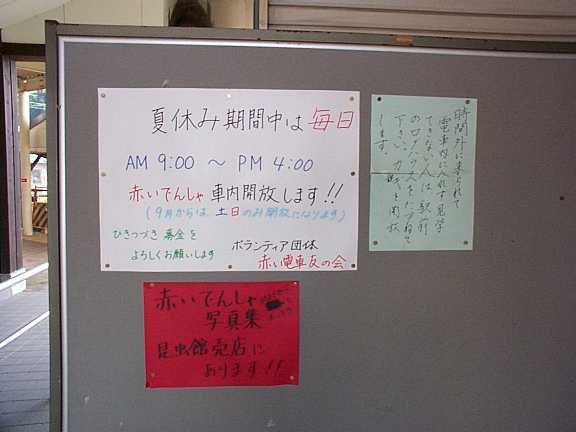 夏休み期間中は毎日
AM 9:00 〜 PM 4:00
赤いでんしゃ 車内開放します!!
(9月からは 土日のみ開放になります)
ひきつづき 募金を
よろしくお願いします
ボランティア団体
赤い電車友の会
時間外に来られて
電車内に入れず見学
できない人は、駅前
のログハウスをたずねて
下さい。
します。
赤いでんしゃ
写真集
昆虫館売店に
あります!!